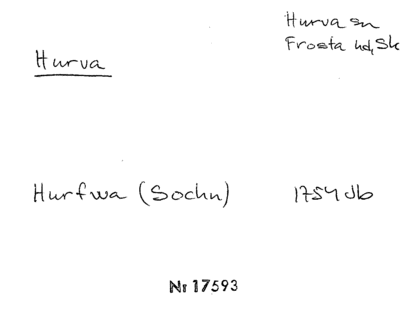 Hurva sn
Frosta hd, Sk
Hurva
Hurfwa (Sochn) 1754 Jb
Nr 17593